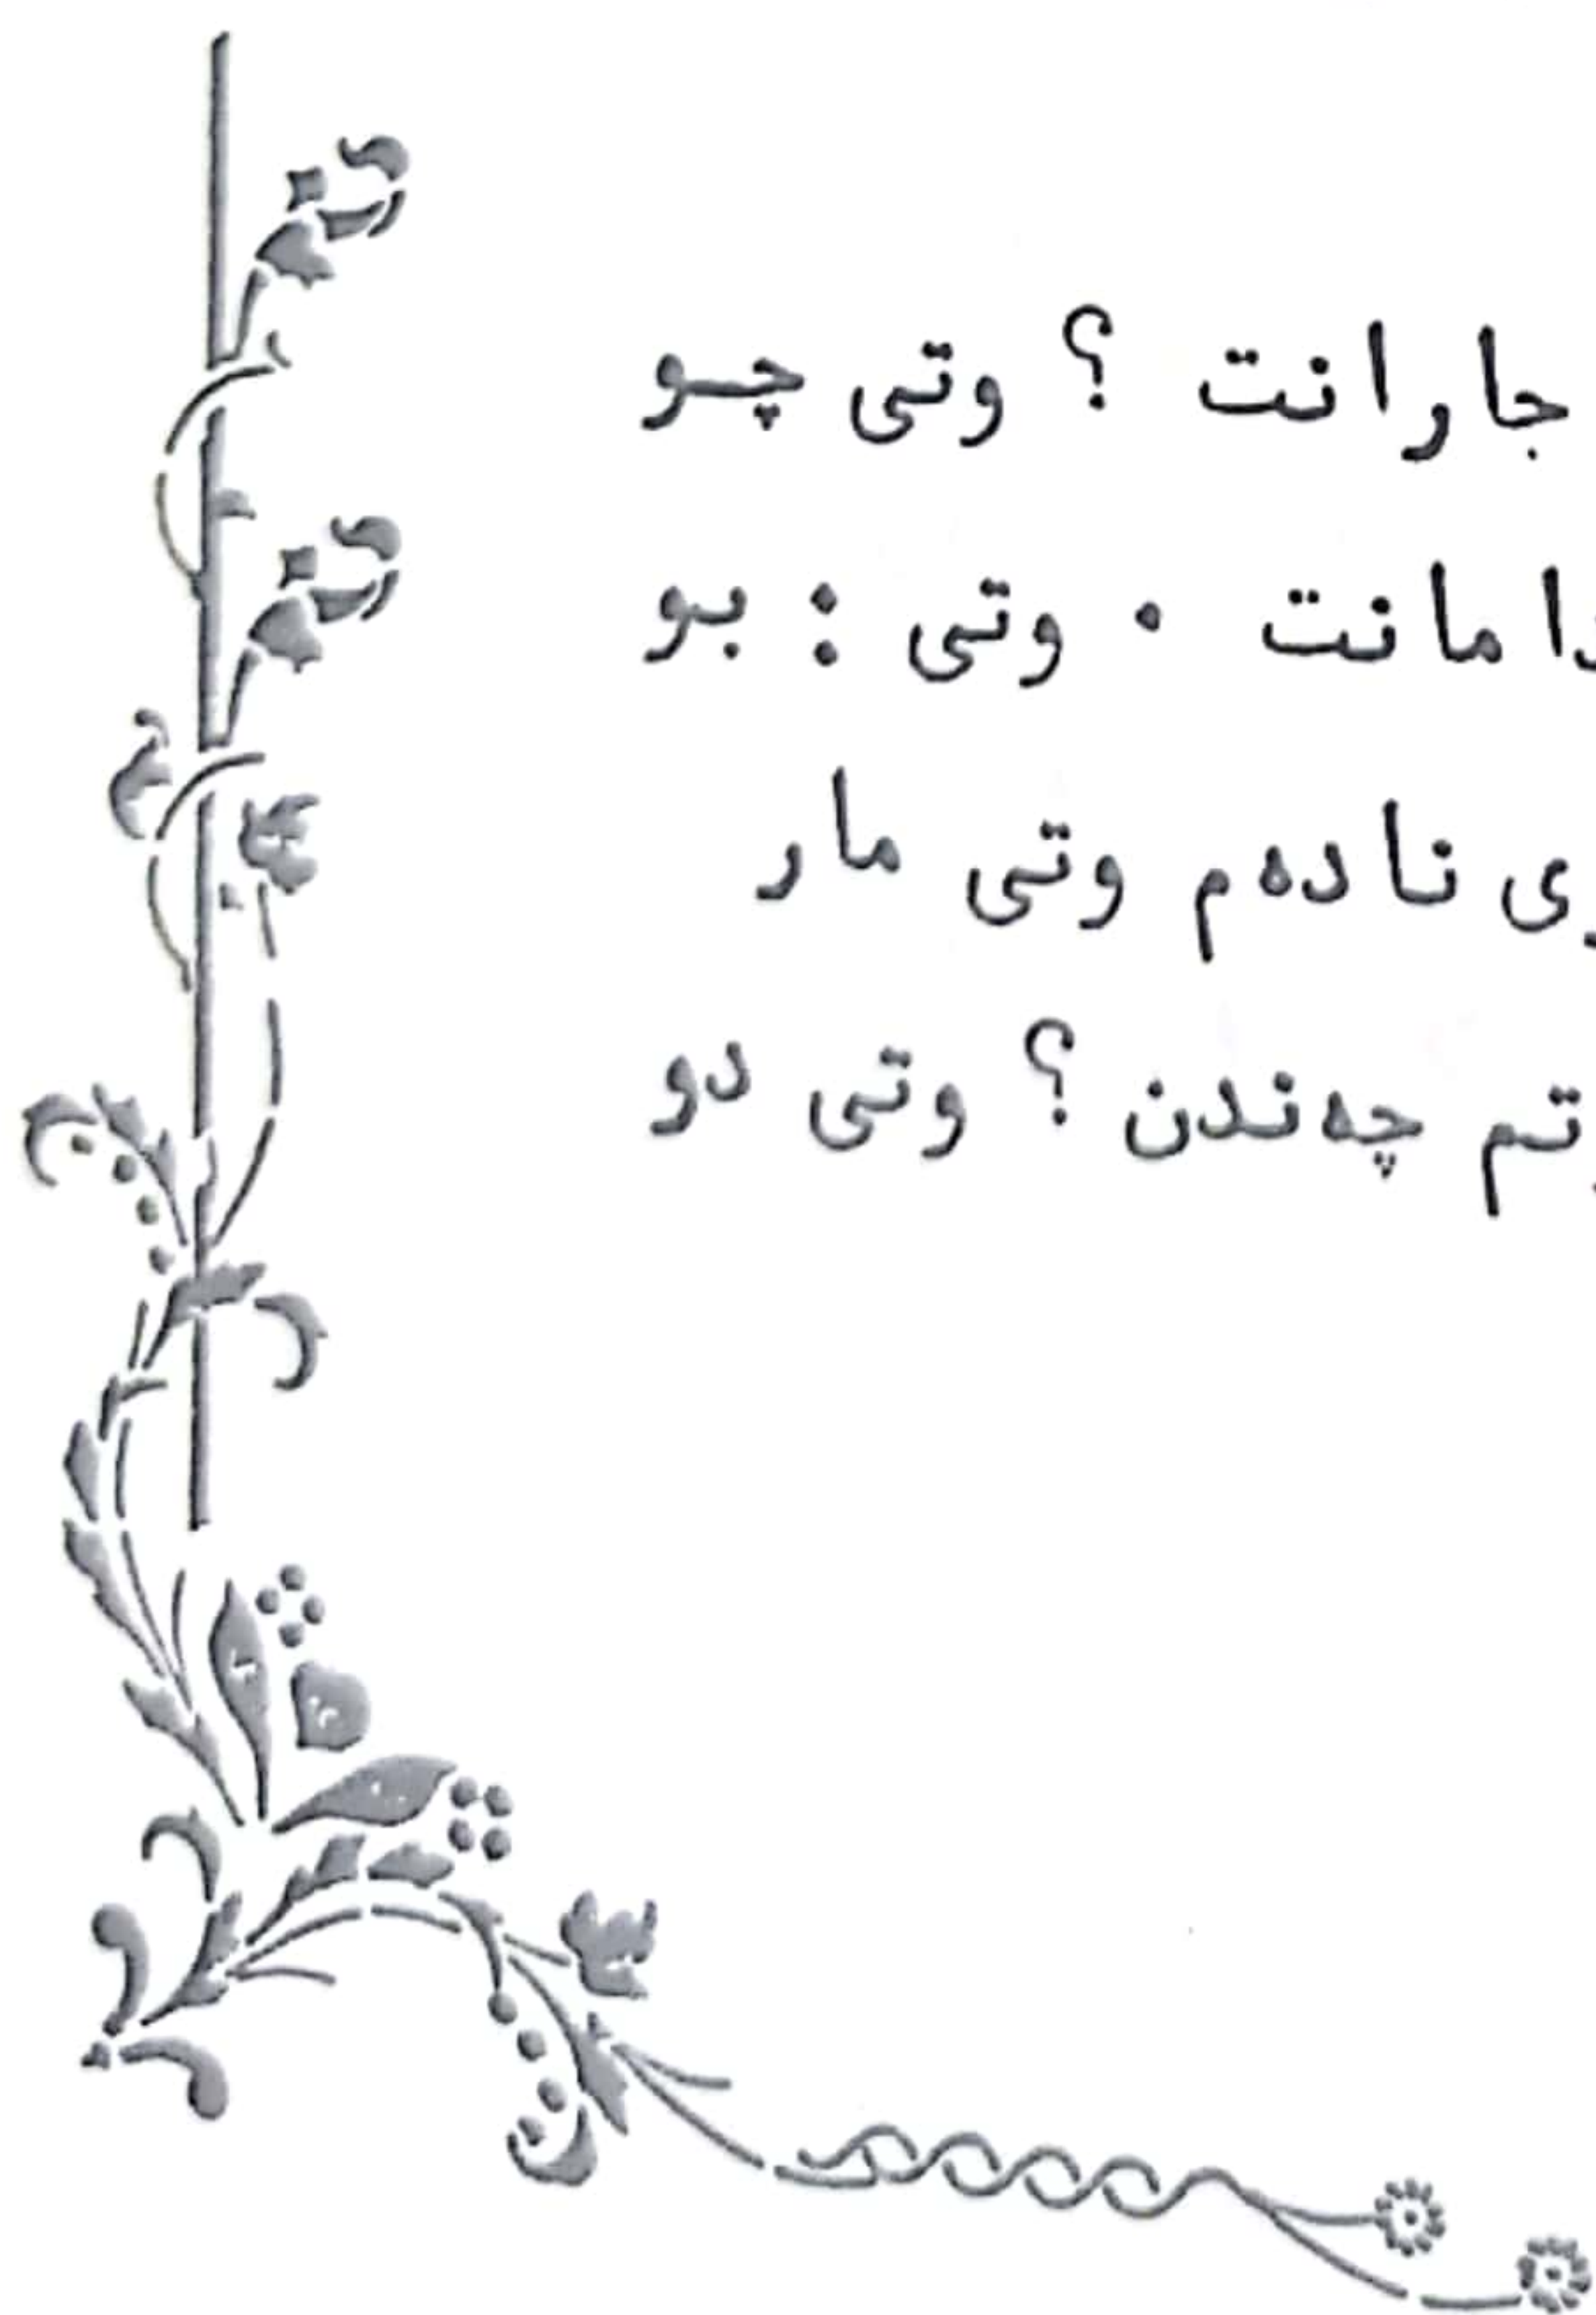 جارانت ؟ وتی چو
دامانت · وتی : بو
نادەم وتی مار
چەندن ؟ وتی دو